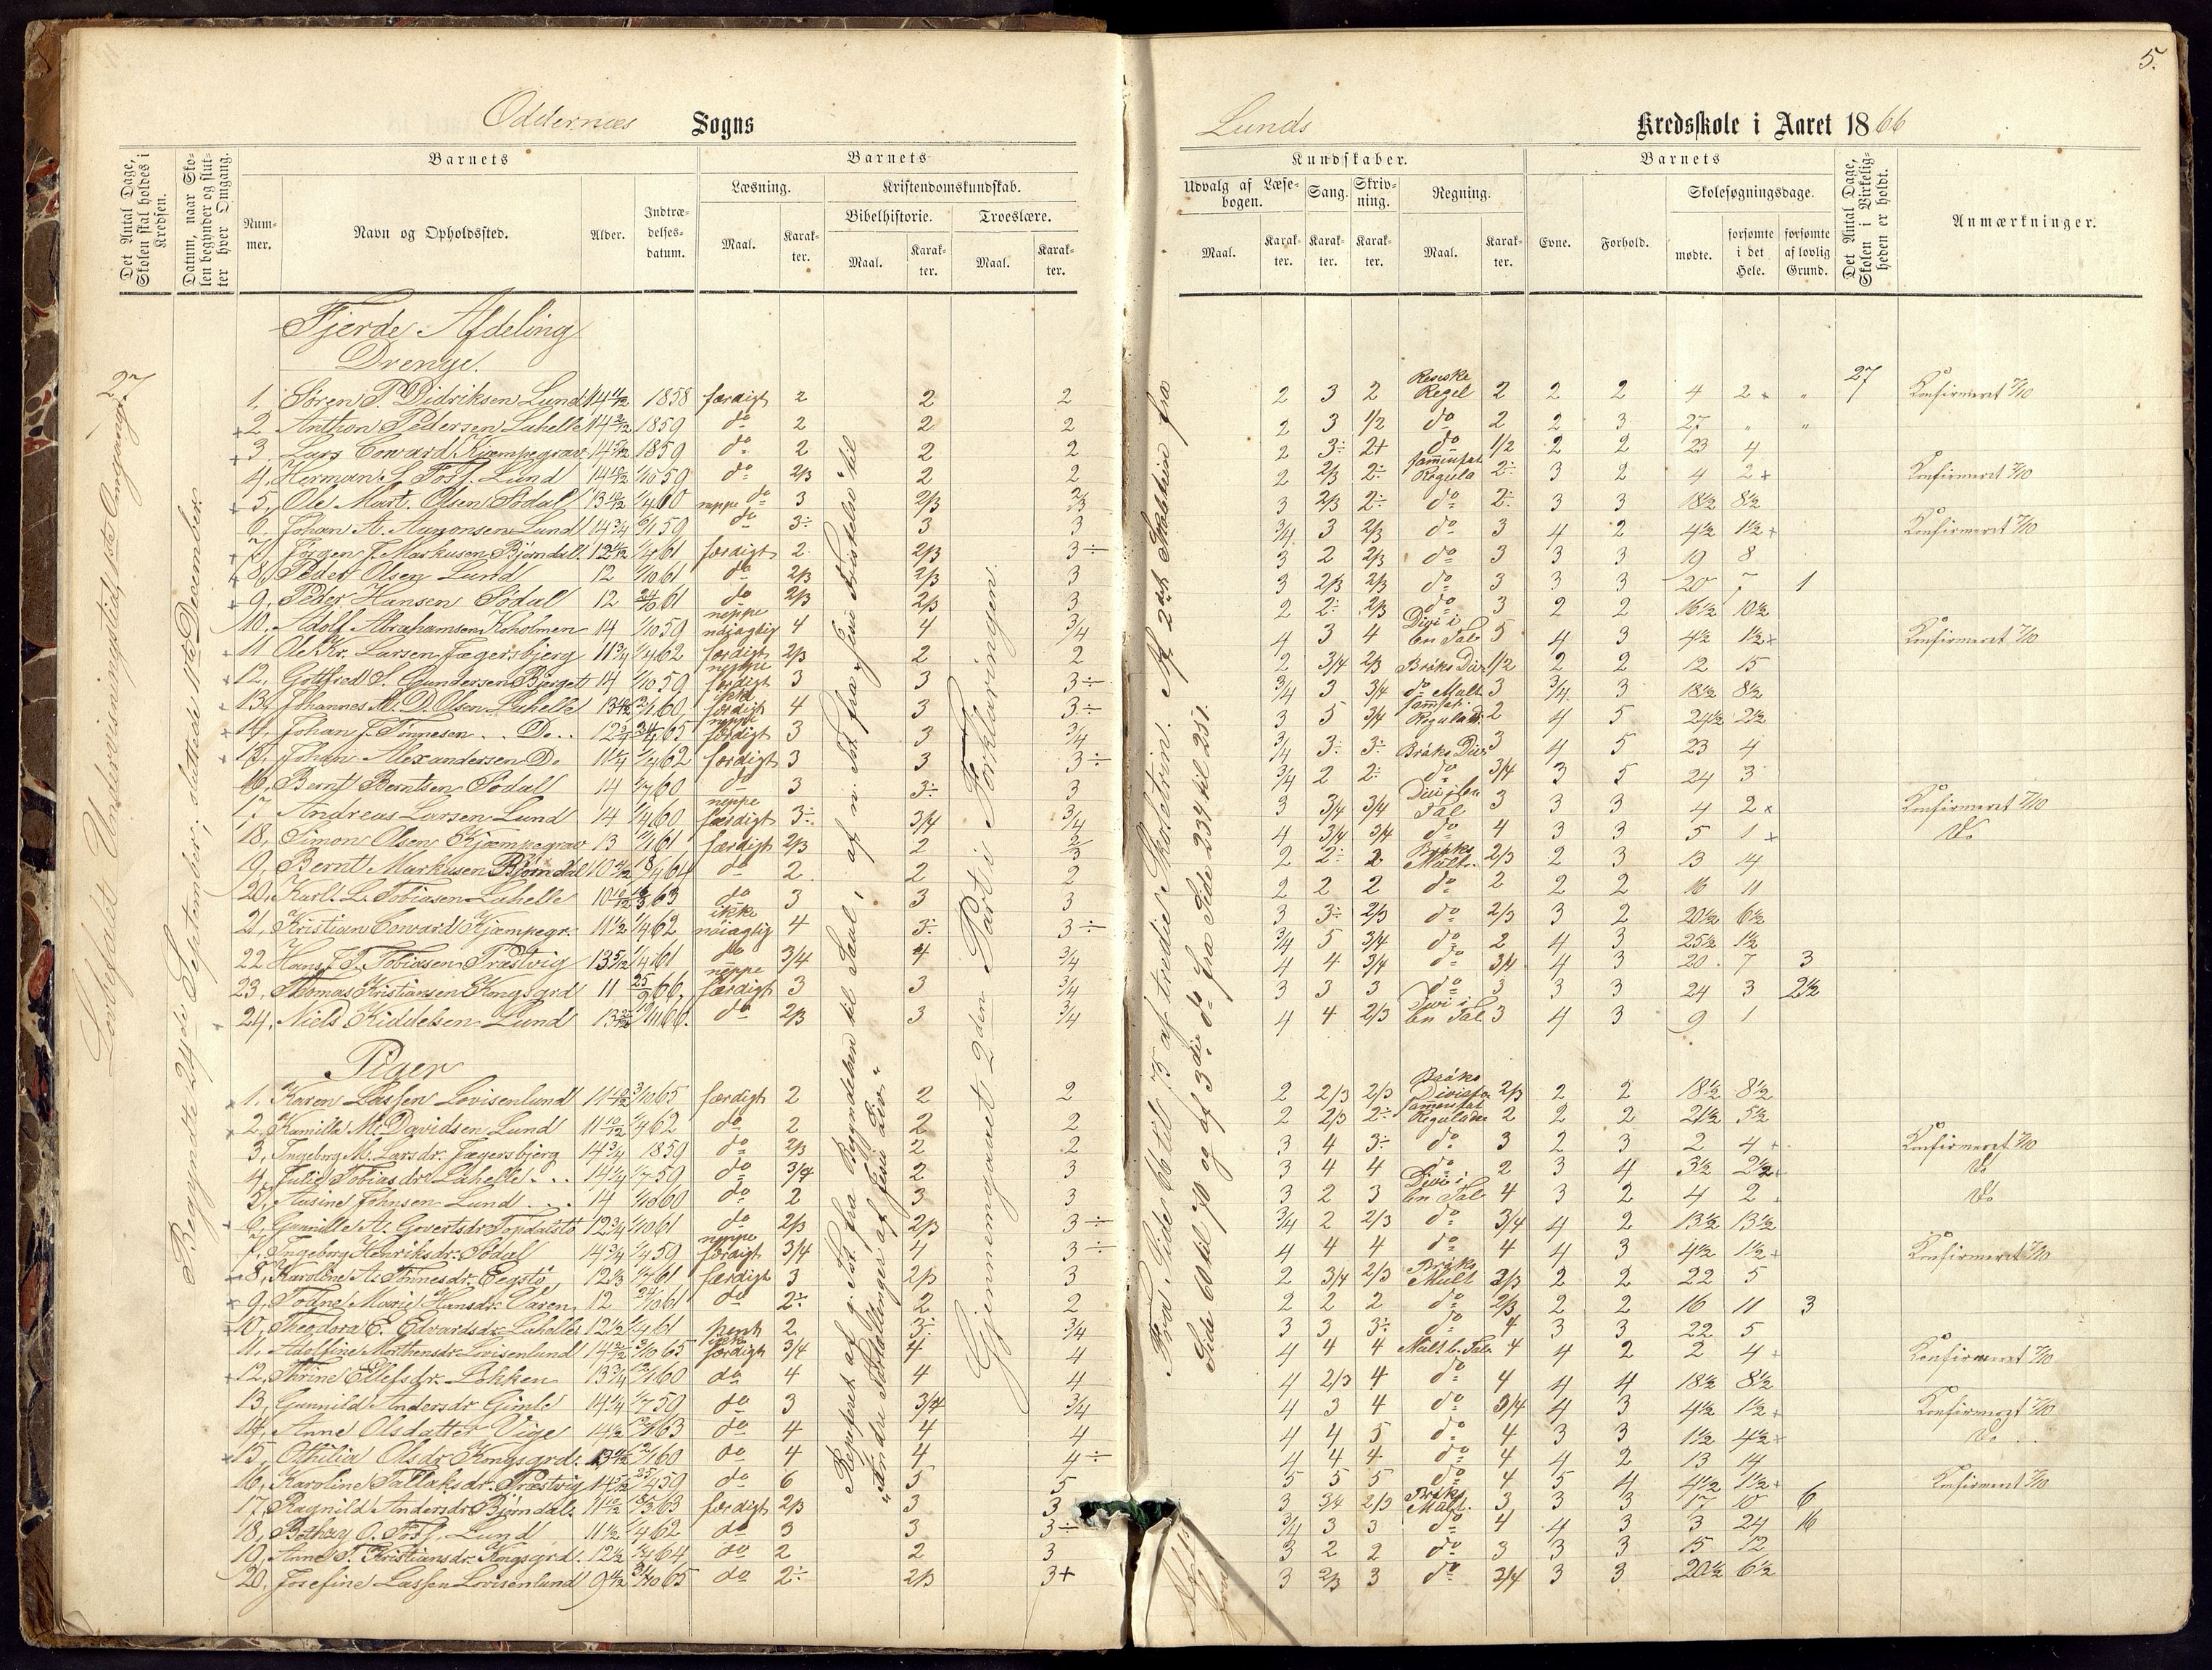 5.
Oddernæs Sogns
Lunds Kredsskole i Aaret 1866
Det Antal Dage, Skolen skal holdes i Kredsen.
Datum, naar Skolen begynder og slutter hver Omgang.
Barnets
Nummer.
Navn og Opholdssted.
Alder.
Indtrædelsesdatum.
Barnets
Læsning.
Maal.
Karakter.
Kristendomskundskab.
Bibelhistorie.
Maal.
Karakter.
Troeslære.
Maal.
Karakter.
Kundskaber.
Udvalg af Læsebogen.
Maal.
Karakter.
Sang.
Karakter.
Skrivning.
Karakter.
Regning.
Maal.
Karakter.
Barnets
Evne.
Forhold.
Skolesøgningsdage.
mødte.
forsømte i det Hele.
forsømte af lovlig Grund.
Det Antal Dage, Skolen i Virkeligheden er holdt.
Anmærkninger.
Lovbefalet Undervisningstid, 1ste Omgang: 27
Begyndte 24de September; sluttede 1ste December.
Fjerde Afdeling
Drenge.
1. Sören P. Didriksen Lund 1858 færdigt 2 2 2 2 3 2 Regel 2 2 2 4 2 27 Konfirmeret 7/10
2 Anthon Pedersen Lahelle 1859 do 2 2 2 2 3 1/2 do 2 2 3 27
3. Lars Conrad Kjæmpegrav 1859 do 2 2 2 2 3÷ 2+ do 1/2 2 2 23 4
4. Herman L. Foss. Lund 1/10 59 do 2/3 2 2 2 2/3 2÷ Regula 2÷ 3 2 4 2 Konfirmeret 7/10
5. Ole Mart. Olsen Södal 1/4 60 neppe do 3 2/3 2/3 3 2/3 2÷ do 2÷ 3 3 18½ 8½
6. Johan A. Aanonsen Lund 14 3/4 do 3÷ 3 3 3/4 3 2/3 do 3 4 2 4½ 1½ Konfirmeret 7/10
7. Jörgen J. Markusen Bjørndal 1/4 61 færdigt 2 2/3 3÷ 3 2 2/3 do 3 3 3 19 8
8. Peder Olsen Lund 12 1/10 61 do 2/3 2/3 3 3 2/3 2/3 do 3 3 3 20 7 1
9. Peder Hansen Södal 12 24/10 61 do 2/3 2/3 3 2 2÷ 2/3 do 3 2 2 16½ 10½
10. Adolf Abrahamsen Koholmen 14 1/10 59 neppe nöiagtig 4 4 3/4 4 3 4 Divi i en Tal 5 4 3 4½ 1½ Konfirmeret 7/10
11 Ole Kr. Larsen Jægersbjerg 11 3/4 1/4 62 færdigt 2/3 2 2 2 3/4 2/3 Bröks Div 1/2 2 2 12 15
12. Gottfred S. Gundersen Bjerget 14 1/10 59 neppe færdigt 3 3 3÷ 3/4 3 3/4 do Mult 3 3/4 3 18½ 8½
13. Johannes M. D. Olsen Lahelle ikke færdigt 4 3 3÷ 3 5 3/4 2 4 5 24½ 2½
14. Johan J. Tönnesen Do neppe færdigt 3 3 3/4 3/4 3÷ 3÷ Bröks Div 3 4 5 23 4
15. Johan Alexandersen Do 11 1/4 1/4 62 færdigt 3 3 3÷ 3/4 2 2÷ do 3/4 3 5 24 3
16. Bernt Berntsen Södal 14 1/7 60 do 3 3÷ 3 3 3/4 3/4 Divi i en Tal 3 3 3 4 2 Konfirmeret 7/10
17 Andreas Larsen Lund 14 1/4 60 neppe færdigt 3÷ 3/4 3/4 4 3/4 3/4 do 4 3 3 5 1 Do
18. Simon Olsen Kjæmpegrav 13 færdigt 2/3 2 2/3 2 2÷ 2 Bröks Mult. 2/3 2 3 13 14
19. Bernt Markusen Bjørndal do 2 2 2 2 2 2 do 2 2 2 16 11
20. Karl L. Tobiasen Lahelle 63 do 3 3 3 3 3÷ 2/3 do 2/3 3 2 20½ 6½
21. Kristian Conrad Kjæmpegr. 11 1/2 1/4 62 ikke nöiagtig 4 3÷ 3÷ 3/4 5 3/4 do 2 4 3 25½ 1½
22 Hans J. T. Tobiasen Præstvig 13 5/12 1/4 61 do 3/4 4 3/4 4 4 3/4 do 3/4 4 3 20 7 3
23. Thomas Kristiansen Kongsgrd 11 66. neppe færdigt 3 3 3/4 3 3 3 do 3 3 3 24 3 2½
24. Niels Kiddelsen Lund 66. do 2/3 3 3/4 4 4 2/3 Divi i En Tal 3 4 3 9 1
Repeteret af g. Test. fra Begyndelsen til Saul, – af n. Test. fra „Jesu Fristelse“ til „Andre Fortællinger af Jesu Liv.“
Gjennemgaaet 2den Part i Forklaringen.
Fra Side 66 til 75 af tredie Skoletrin. Af 2det Skoletrin fra Side 60 til 70 og af 3die do fra Side 234 til 251.
Piger
1. Karen Lassen Lovisenlund 65 færdigt 2 2 2 2 2/3 2/3 Bröks Division 2/3 2 2 18½ 8½
2. Kamilla M. Davidsen Lund 11 10/12 1/4 62 do 2 2 2 2 2/3 2÷ 2 2 2 21½ 5½
3. Ingeborg M. Larsdr. Jægersbjerg 14 3/4 1859 do 2/3 2 2 3 4 3÷ do 3 2 3 2 4 Konfirmeret 7/10
4. Julie Tobiasdr Lahelle 14 1/4 1/7 59 do 3/4 2 3 3 4 4 do 2 3 4 3½ 2½ Do
5. Ausine Johnsen Lund 14 60 do 2 3 3 3 2 3 Divi i en Tal 4 3 2 4 2 Do
6. Gunnille A. Govertsdr Topdalstö 12 3/4 1/10 61 do 2/3 2/3 3÷ 3/4 2 2/3 do 3/4 4 2 13½ 13½
7. Ingeborg Henriksdr. Södal 14 3/4 1/4 59 neppe færdigt 3/4 4 3÷ 4 4 4 do 4 4 3 4½ 1½ Konfirmeret 7/10
8. Karoline A. Tönnesdr. Eegstö 61 færdigt 3 2/3 3 2 3/4 2/3 Bröks Mult 2/3 2 2 22 5
9. Tolline Marie Hansdr. Varen 12 24/10 61 do 2÷ 2 2 2 2 2 do 2/3 2 2 16 11 3
10. Theodora E. Edvardsdr Lahelle 12 1/2 1/4 61 pent 2 3÷ 3/4 3 3 3÷ do 4 3 3 22 5
11. Adolfine Morthensdr Lovisenlund 65 ikke færdigt 3/4 4 4 4 4 4 4 4 2 2 4 Konfirmeret 7/10
12. Thrine Ellefsdr. Lökken 13 3/4 60 do 4 4 4 4 2/3 4 do 4 4 4 18½ 8½
13. Gunnild Andersdr Gimle 14 1/4 1/7 59 do 3 3/4 3/4 4 3 4 do 3/4 4 3 4½ 1½ Konfirmeret 7/10
14. Anne Olsdatter Vige 14 1/2 63 do 4 4 4 4 4 5 do 4 3 3 1½ 4½ Do
15. Othilia Olsdr Kongsgrd. 60 do 4 4 4÷ 4 4 4 do 4 4 2 13 14
16. Karoline Tallaksdr. Præstvig 59 do 6 5 5 5 5 5 do 4 5 4 4½ 1½ Konfirmeret 7/10
17. Ragnild Andersdr Bjørndal 63 færdigt 2/3 3 3 3 3/4 2/3 Bröks Mult. 3 3 3 17 10 6
18. O. Foss. Lund 11 1/2 1/4 62 do 3 3 3÷ 3/4 3 3 do 4 4 3 3 24 16
19. Anne T. Kristiansdr. Kngsgrd. 12 1/2 64 do 2 2 3 3 2 2 do 3 3 3 15 12
20. Josefine Lassen Lovisenlund 65 do 2÷ 2/3 3+ 3 2/3 3 do 3/4 3 3 20½ 6½